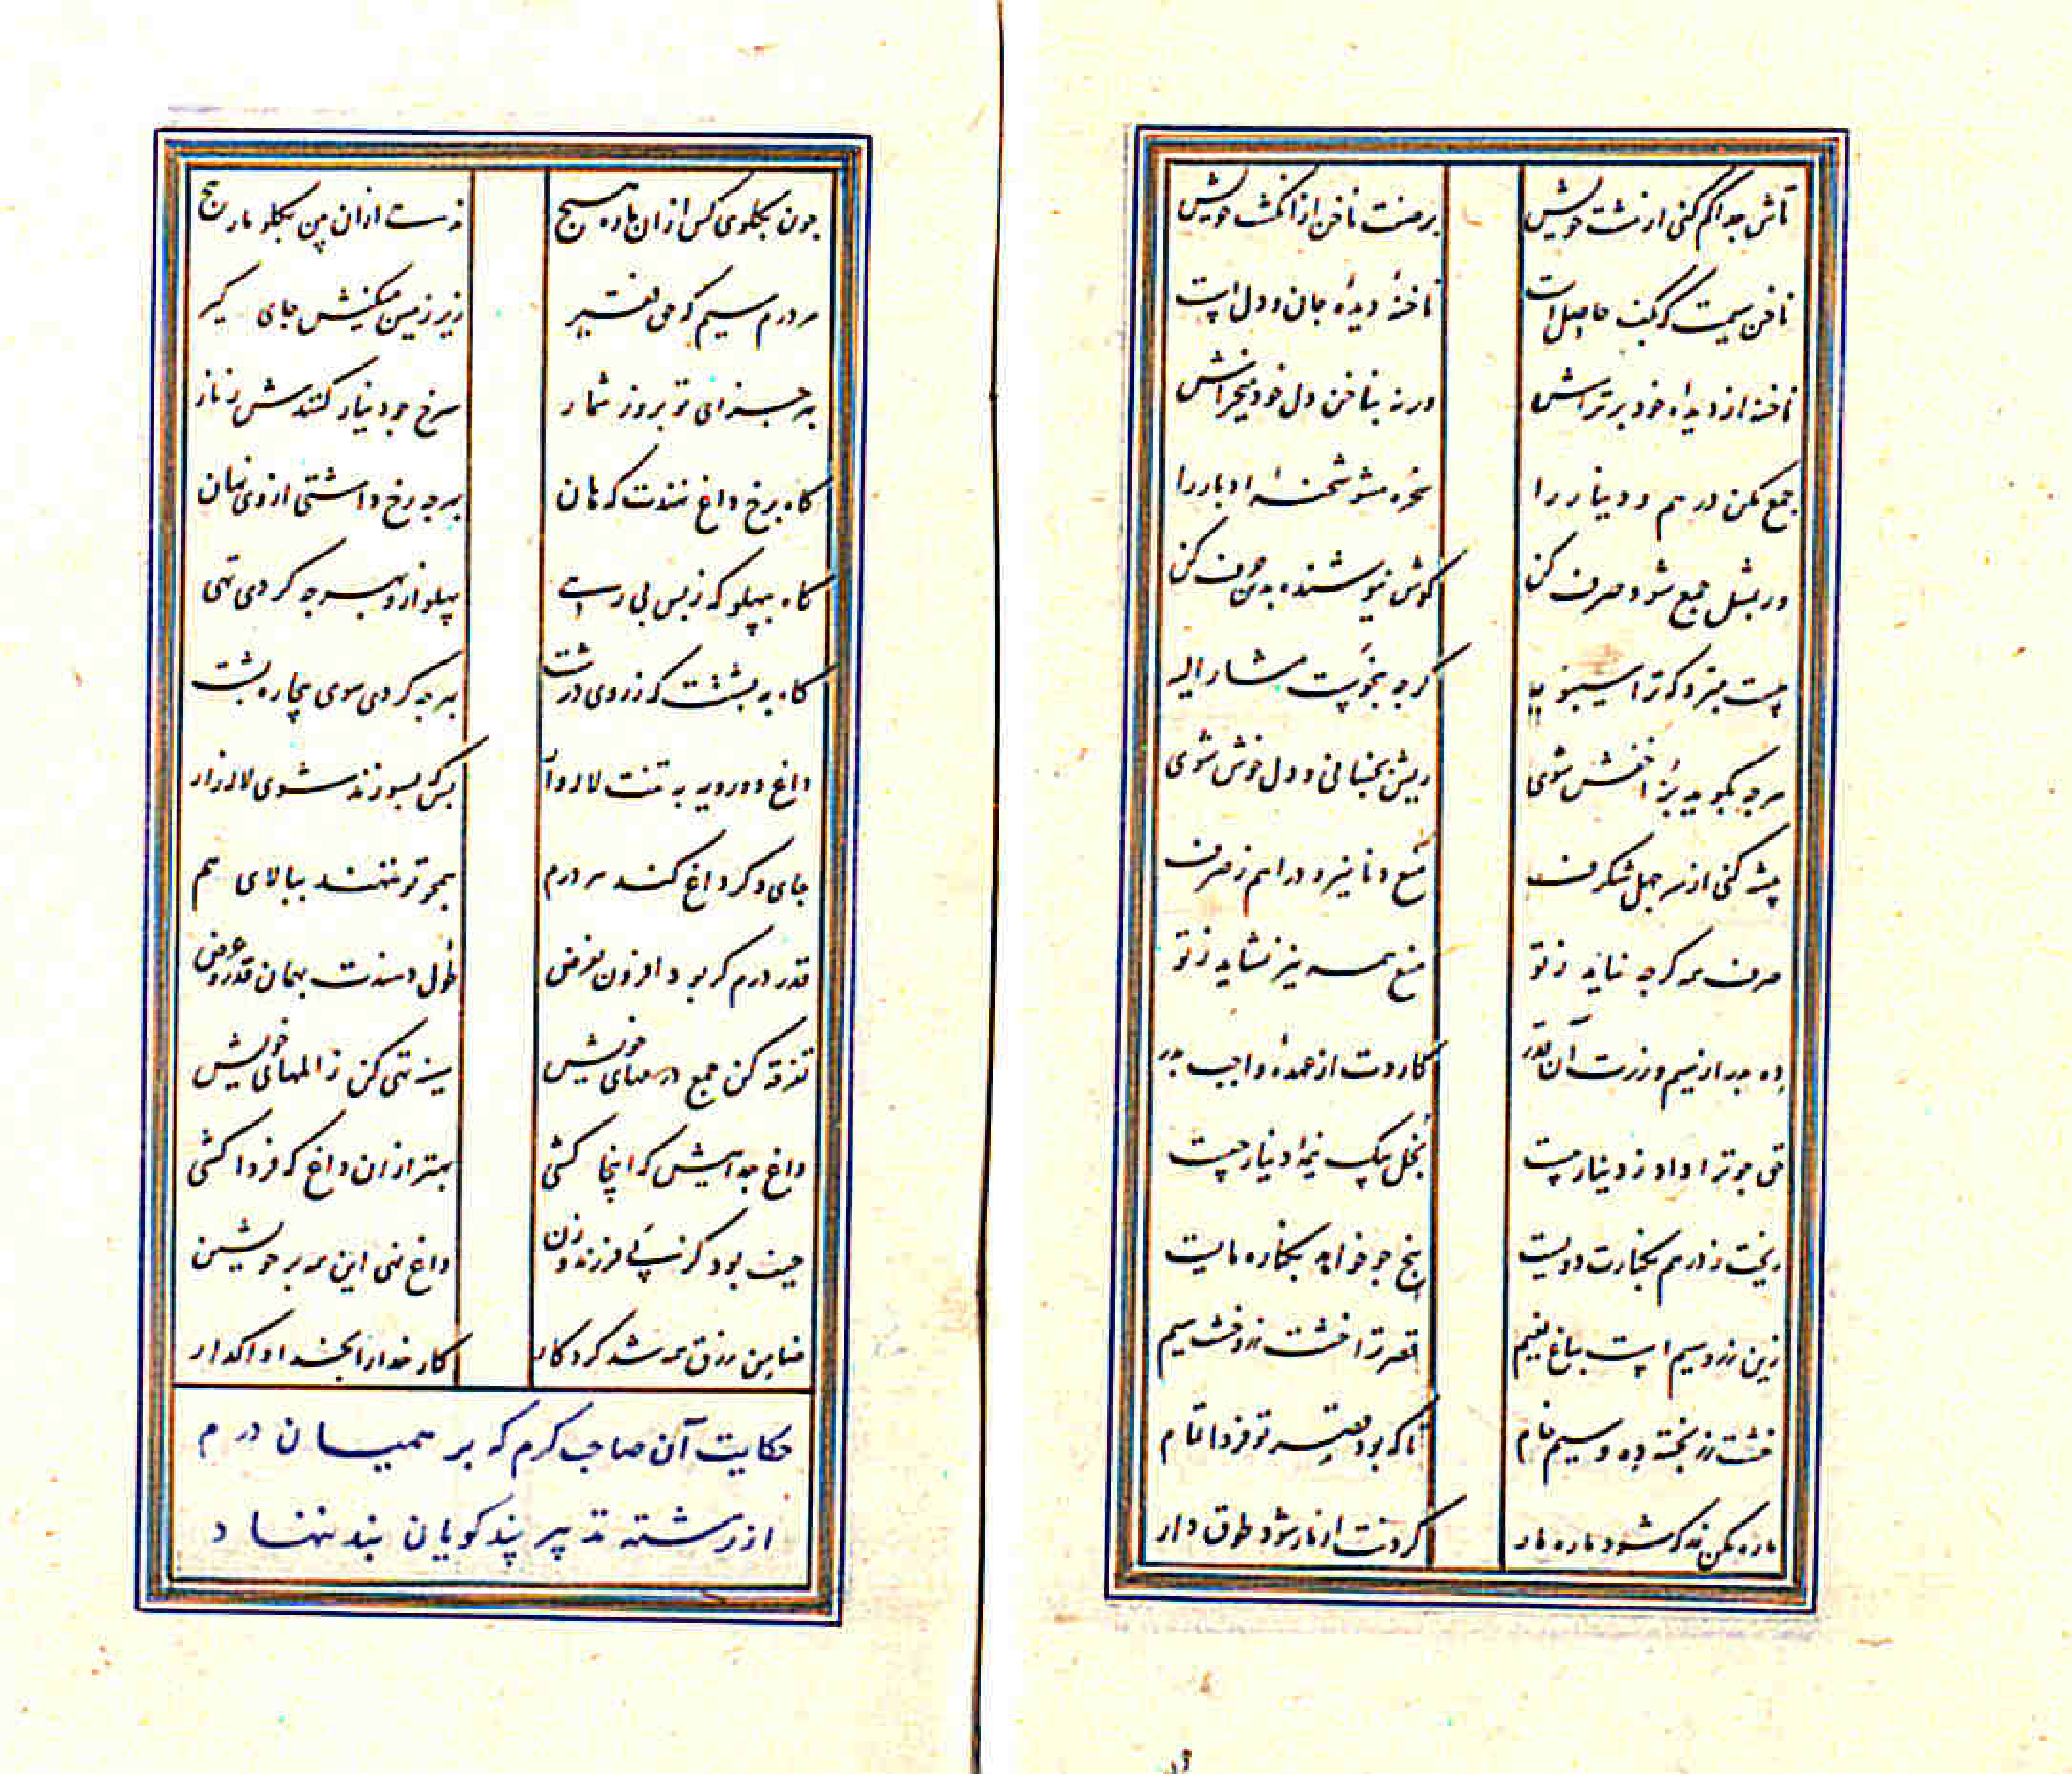 تاش جدا کم کنی از مشت خویش
بر صفت ناخن از انگشت خویش
ناخن سیمت که بکف حاصل است
ناخنهٔ دیدهٔ جان و دل است
ناخنه از دیده خود بر تراش
ورنه بناخن دل خود میخراش
جمع مکن درهم و دینار را
سخره مشو شحنهٔ ادبار را
ور بمثل جمع شود صرف کن
گوش نیوشنده بدین حرف کن
چیست هنر کت را سیبویه
کرچه بنحوست مشار الیه
هرچه بکوید بز اخفش شوی
ریش بجنبانی و دل خوش شوی
پیشه کنی از سر جهل شکرف
منع دنانیر و دراهم ز صرف
صرف همه کرچه نیاید ز تو
منع همه نیز نشاید ز تو
ده بدر از سیم و زرت آن قدر
کاردت از عهدهٔ واجب بدر
حق چو ترا داد ز دینار بیست
بخل بیک نیمهٔ دینار چیست
ریخت ز درهم بکنارت دویست
پنج چو خواهد بکناره مایست
زین زر و سیم است بباغ نعیم
قصر ترا خشت زر و خشت سیم
خشت زر پخته ده و سیم خام
تا که بود قصر تو فردا تمام
ماره مکن زر که شود ماره مار
کردنت از مار شود طوق دار
چون بکلوی کس از ان ماره هیچ
نه ست از ان پس بکلو مار پیچ
هر درم سیم که می فقیر
زیر زمین میکنیش جای کیر
بهر جزای تو بروز شمار
سرخ چو دینار کنندش ز نار
کاه برخ داغ نهندت که هان
بهر چه رخ داشتی از وی نهان
کاه بپهلو که ز بس بی رهی
پهلو ازو بهر چه کردی تهی
کاه به پشتت که ز روی درشت
بهر چه کردی سوی بیچاره پشت
داغ دو رویه به تنت لاله وار
بس که بسوزند شوی لاله زار
جای دکر داغ کند هر درم
همچو تو ننهند ببالای هم
قدر درم کر بود افزون بفرض
طول دهندت بهمان قدر و عرض
تفرقه کن جمع درمهای خویش
سینه تهی کن ز المهای خویش
داغ جداییش که اینجا کشی
بهتر از ان داغ که فردا کشی
حیف بود کز پی فرزند و زن
داغ نهی این همه بر خویشتن
ضامن رزق همه شد کردکار
کار خدا را بخداوا کذار
حکایت آن صاحب کرم که بر همیان درم
از رشته تدبیر پند کویان بند ننهاد